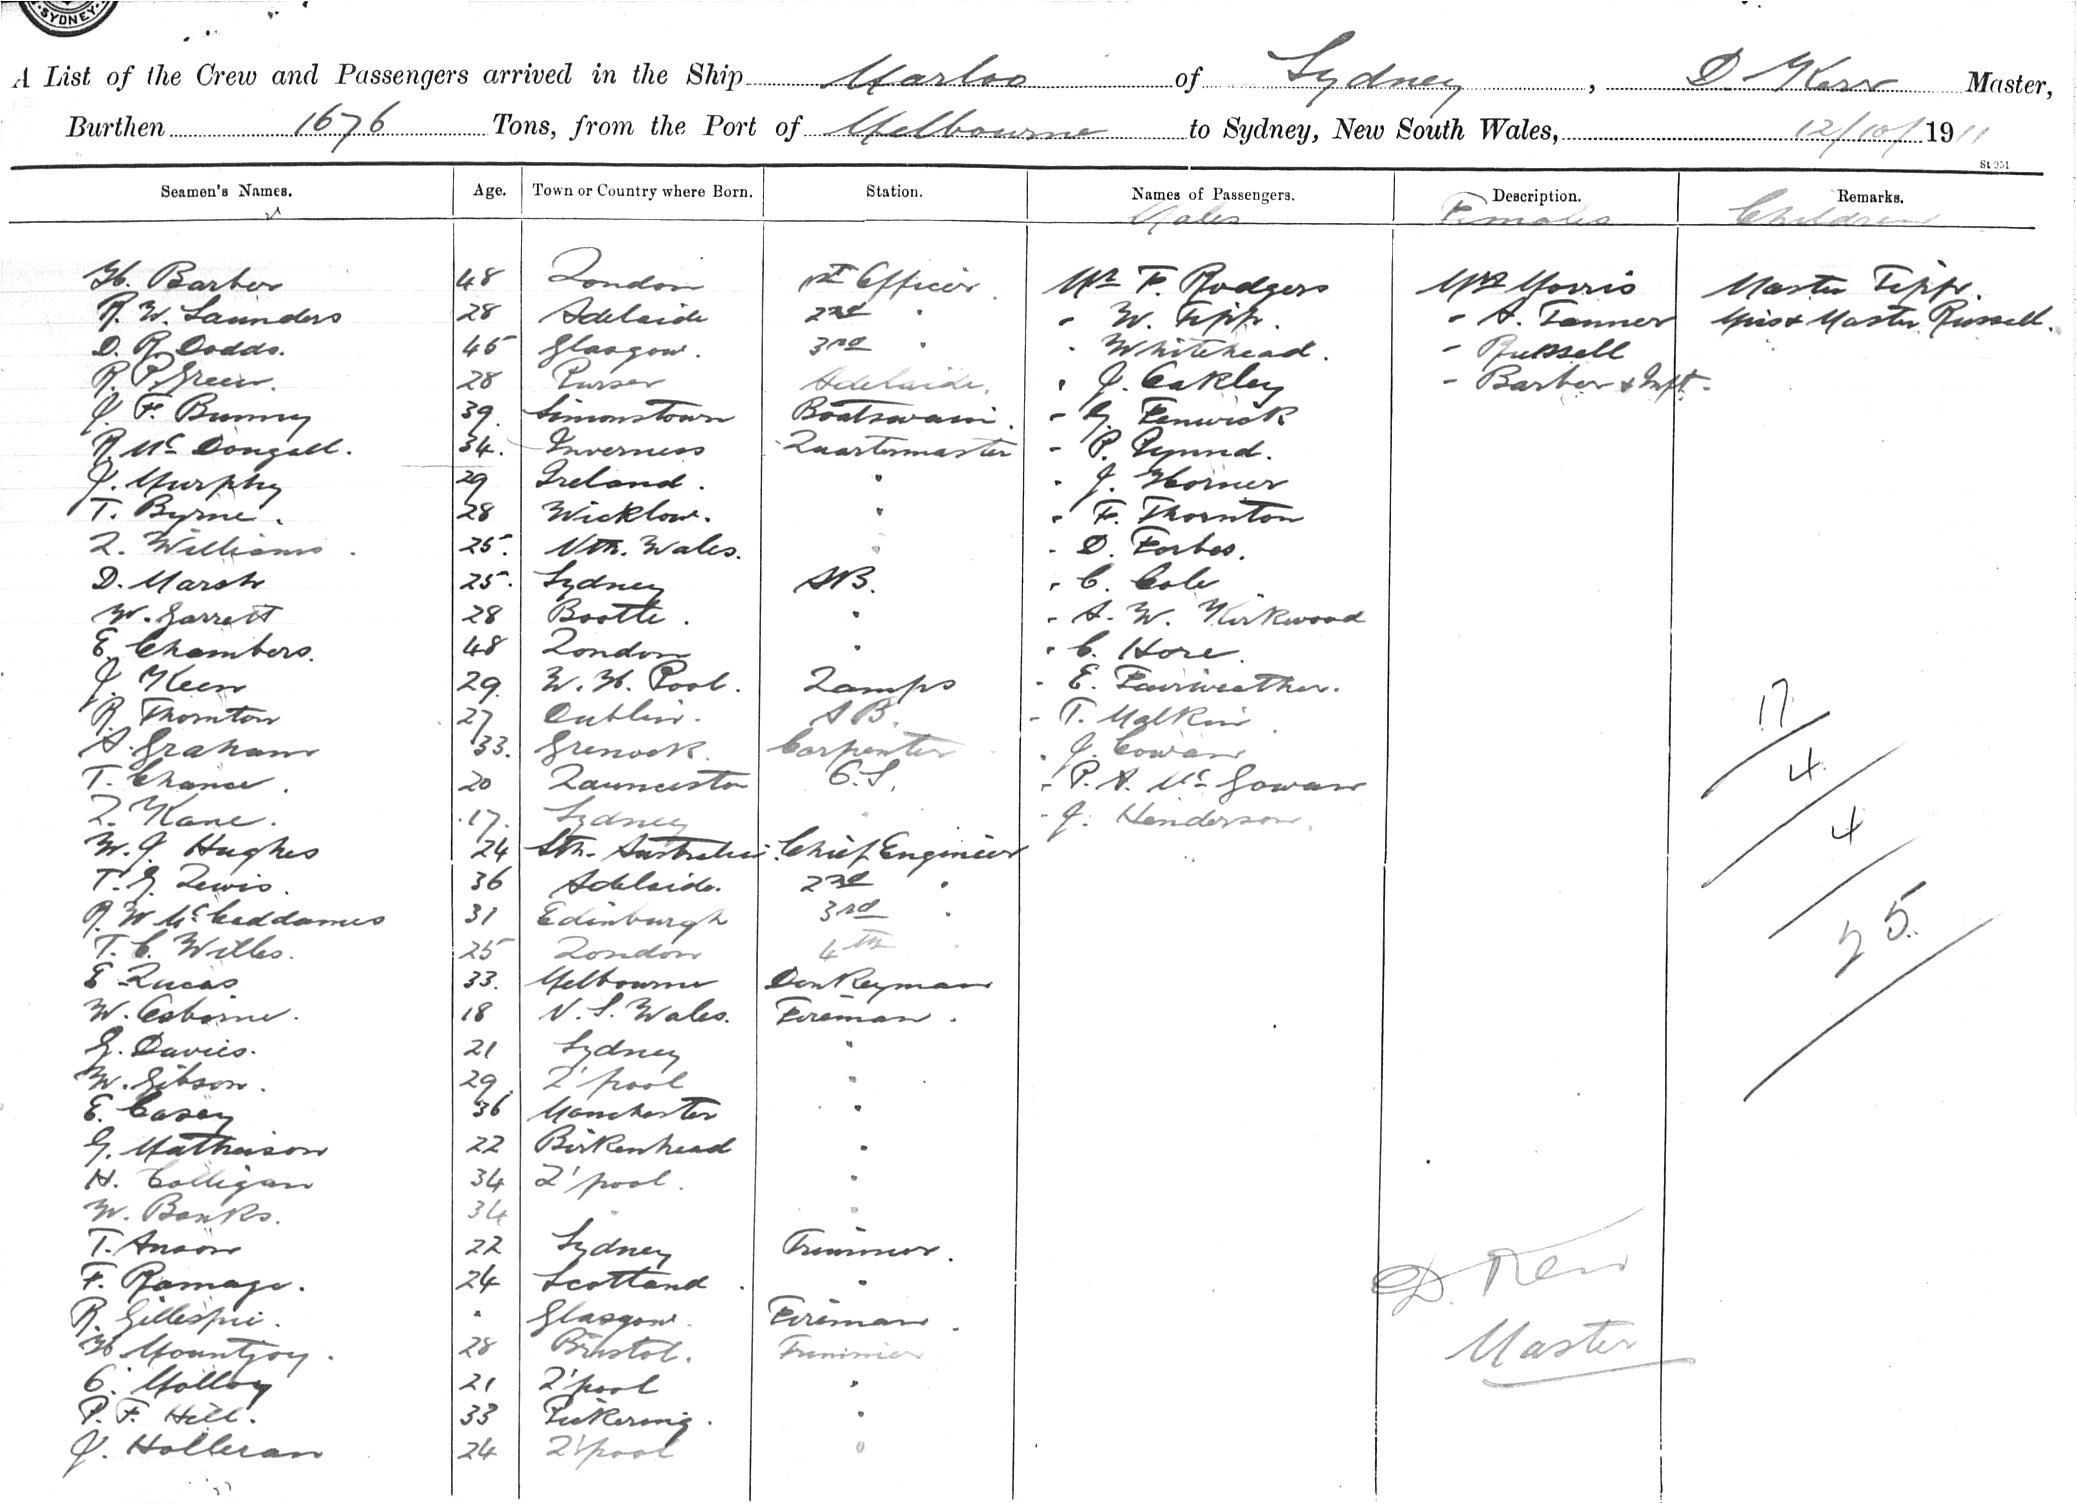 SYDNEY
A List of the Crew and Passengers arrived in the Ship Marloo of Sydney, D. Kerr Master,
Burthen 1676 Tons, from the Port of Melbourne to Sydney, New South Wales, 12/10/1911
St 251
Seamen's Names. Age. Town or Country where Born. Station. Names of Passengers. Description. Remarks.
Males Females Children
H. Barber 48 London 1st Officer Mr F. Rodgers Mrs Morris Master Tipp.
R. W. Saunders 28 Adelaide 2nd " - W. Tipp. - A. Tanner Miss & Master Russell.
D. R. Dodds. 45 Glasgow. 3rd " - Whitehead. - Russell
R. P. Green. 28 Purser Adelaide. - J. Oakley - Barber & Inft.
J. F. Bunny 39. Simonstown Boatswain. - G. Fenwick
R. McDougall. 34. Inverness Quartermaster - P. Pymnd.
J. Murphy 29 Ireland. " - J. Horner
T. Byrne. 28 Wicklow. " - F. Thornton
L. Williams. 25. Nth. Wales. " - D. Forbes.
D. Marsh 25. Sydney AB. - C. Cole
W. Garrett 28 Bootle. " - A. W. Kirkwood
E. Chambers. 48 London " - C. Hore.
J. Keen 29. W. H. Pool. Lamps - E. Fairweather.
R. Thornton 27 Dublin. AB. - T. Malkin
A. Graham 33. Grenock. Carpenter - J. Cowan
T. Chance. 20 Launceston O.S. - P. A. McGowan
L. Kane. 17. Sydney " - J. Henderson.
W. J. Hughes 24 Sth. Australia Chief Engineer
T. G. Lewis. 36 Adelaide. 2nd "
R. W. McCaddames 31 Edinburgh 3rd "
T. C. Willes. 25 London 4th "
E. Lucas 33. Melbourne Donkeyman
W. Osborne. 18 N. S. Wales. Fireman.
G. Davies. 21 Sydney "
W. Gibson. 29. L'pool "
E. Casey 36 Manchester "
G. Mathieson 22 Birkenhead "
H. Colligan 34 L'pool. "
W. Banks. 34 " "
T. Anson 22 Sydney Trimmer.
F. Ramage. 24 Scotland. "
R. Gillespie. " Glasgow. Fireman.
W. Mountjoy. 28 Bristol. Trimmer
C. Molloy 21 L'pool "
P. F. Hill. 33 Pickering. "
J. Holleran 24 L'pool "
17
4
4
25
D. Kerr
Master